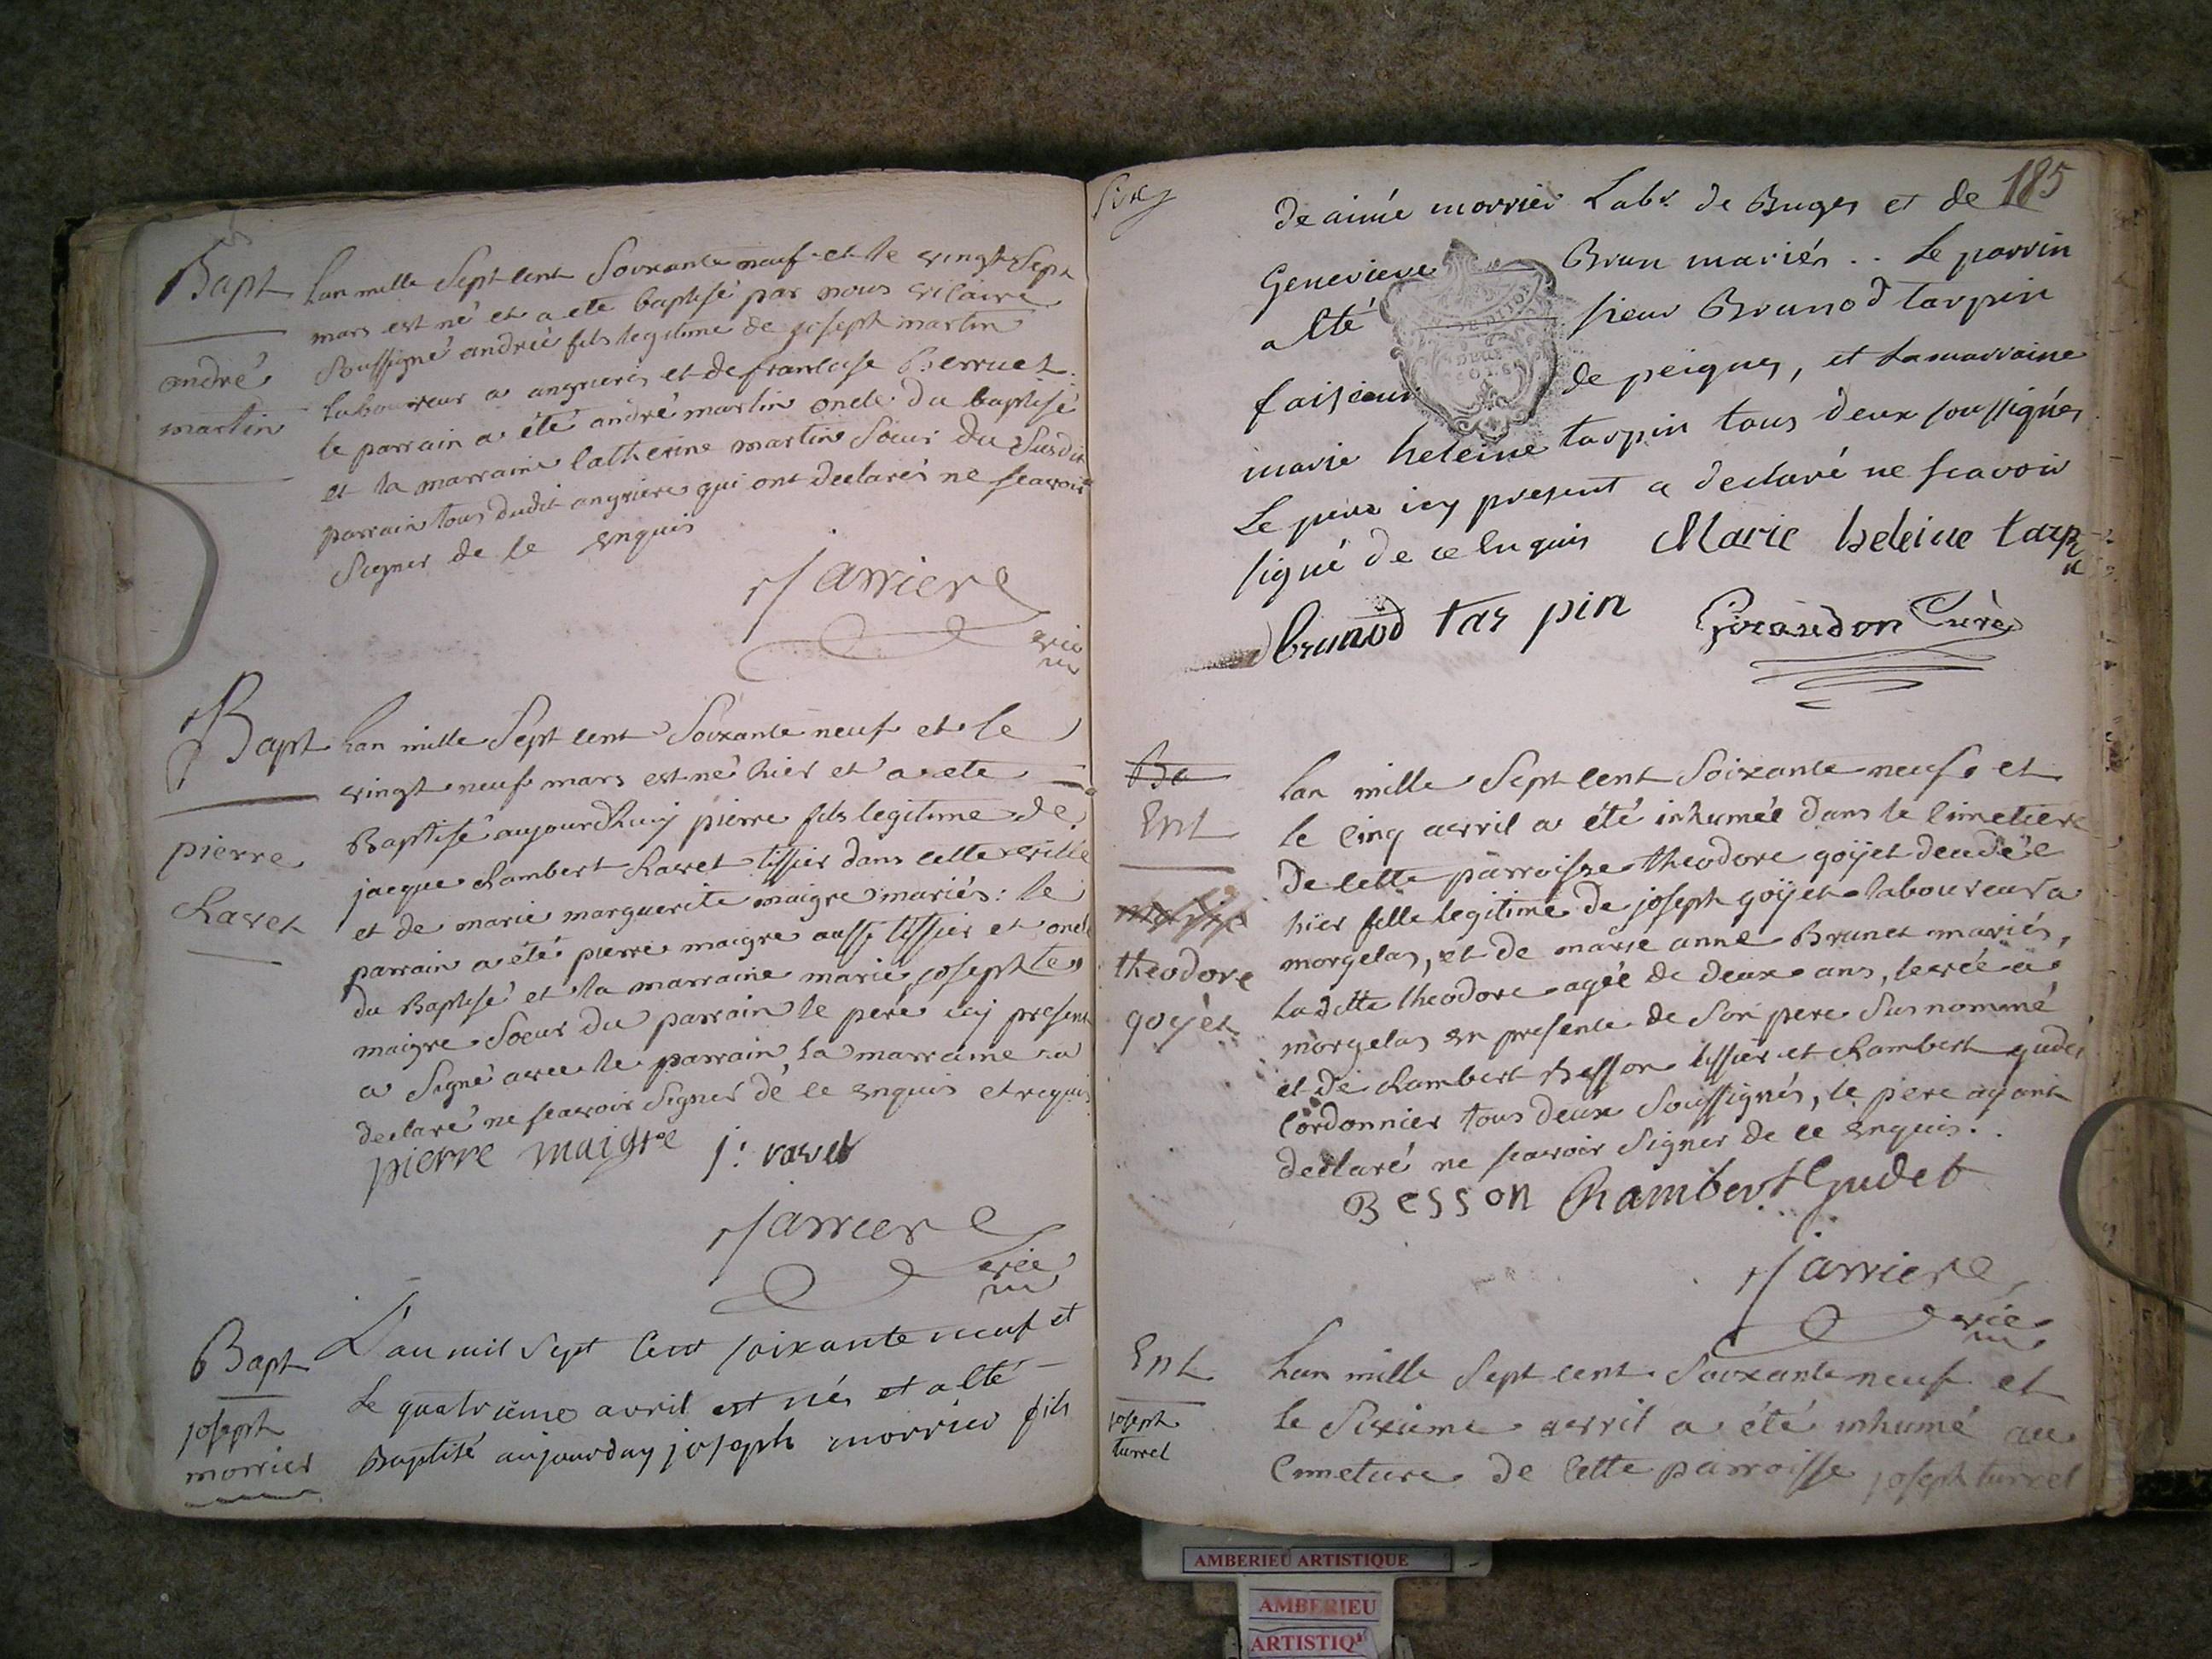 Bapt
andré
martin
Lan mille Sept Cent Soixante neuf et le vingt Sept
mars est né et a ete baptisé par nous vicaire
Soussigné andréé fils legitime de joseph martin
laboureur a angrieres et de francoise Perruet
le parrain a été andré martin oncle du baptisé
et la marraine Catherine martin Soeur du Susdit
parrain tous dudit angriere qui ont declarés ne scavoir
Signer de ce enquis
jarriere
vic
Bapt
pierre
Ravet
Lan mille Sept Cent Soixante neuf et le
vingt neuf mars est né hier et a ete
Baptisé aujourdhuy pierre fils legitime de
jacque Rambert Ravet tissier dans cette ville
et de marie marguerite maigre mariés: le
parrain a été pierre maigre aussi tissier et oncle
du Baptisé et la marraine marie josephte
maigre Soeur du parrain le pere icy present
a Signé avec le parrain, la marraine a
declaré ne scavoir Signer de ce enquis et requis
pierre maigre j: ravet
jarriere
vic
Bapt
joseph
morrier
L'an mil Sept Cent soixante neuf et
Le quatrieme avril est nés et a Eté
Baptisé aujourduy joseph morrier fils
185
de aimé morrier Labr de Buges et de
Genevieve Brun mariés .. Le parrin
a Eté sieur Brunod tarpin
faiseur de peignes, et La marraine
marie heleine tarpin tous deux soussignés
Le pere icy present a declaré ne scavoir
signé de ce Enquis Marie heleine tarpin
brunod tarpin Giraudon Curé
Ba
Ent
theodore
goÿet
Lan mille Sept Cent Soixante neuf et
le Cinq avril a été inhumée dans le Cimetiere
de Cette parroisse theodore goÿet decedée
hier fille legitime de joseph goÿet laboureur a
morgelas, et de marie anne Brunet mariés,
Ladite theodore agée de deux ans, levée a
morgelas en presence de Son pere Susnommé
et de Rambert Besson tissier et Rambert gudet
Cordonnier tous deux Soussignés, le pere ayant
declaré ne scavoir Signer de ce enquis.
Besson Rambert Gudet
jarriere
vic
Ent
joseph
turrel
Lan mille Sept Cent Soixante neuf et
le Sixieme avril a été inhumé au
Cimetiere de Cette parroisse joseph turrel
AMBERIEU ARTISTIQUE
AMBERIEU
ARTISTIQ